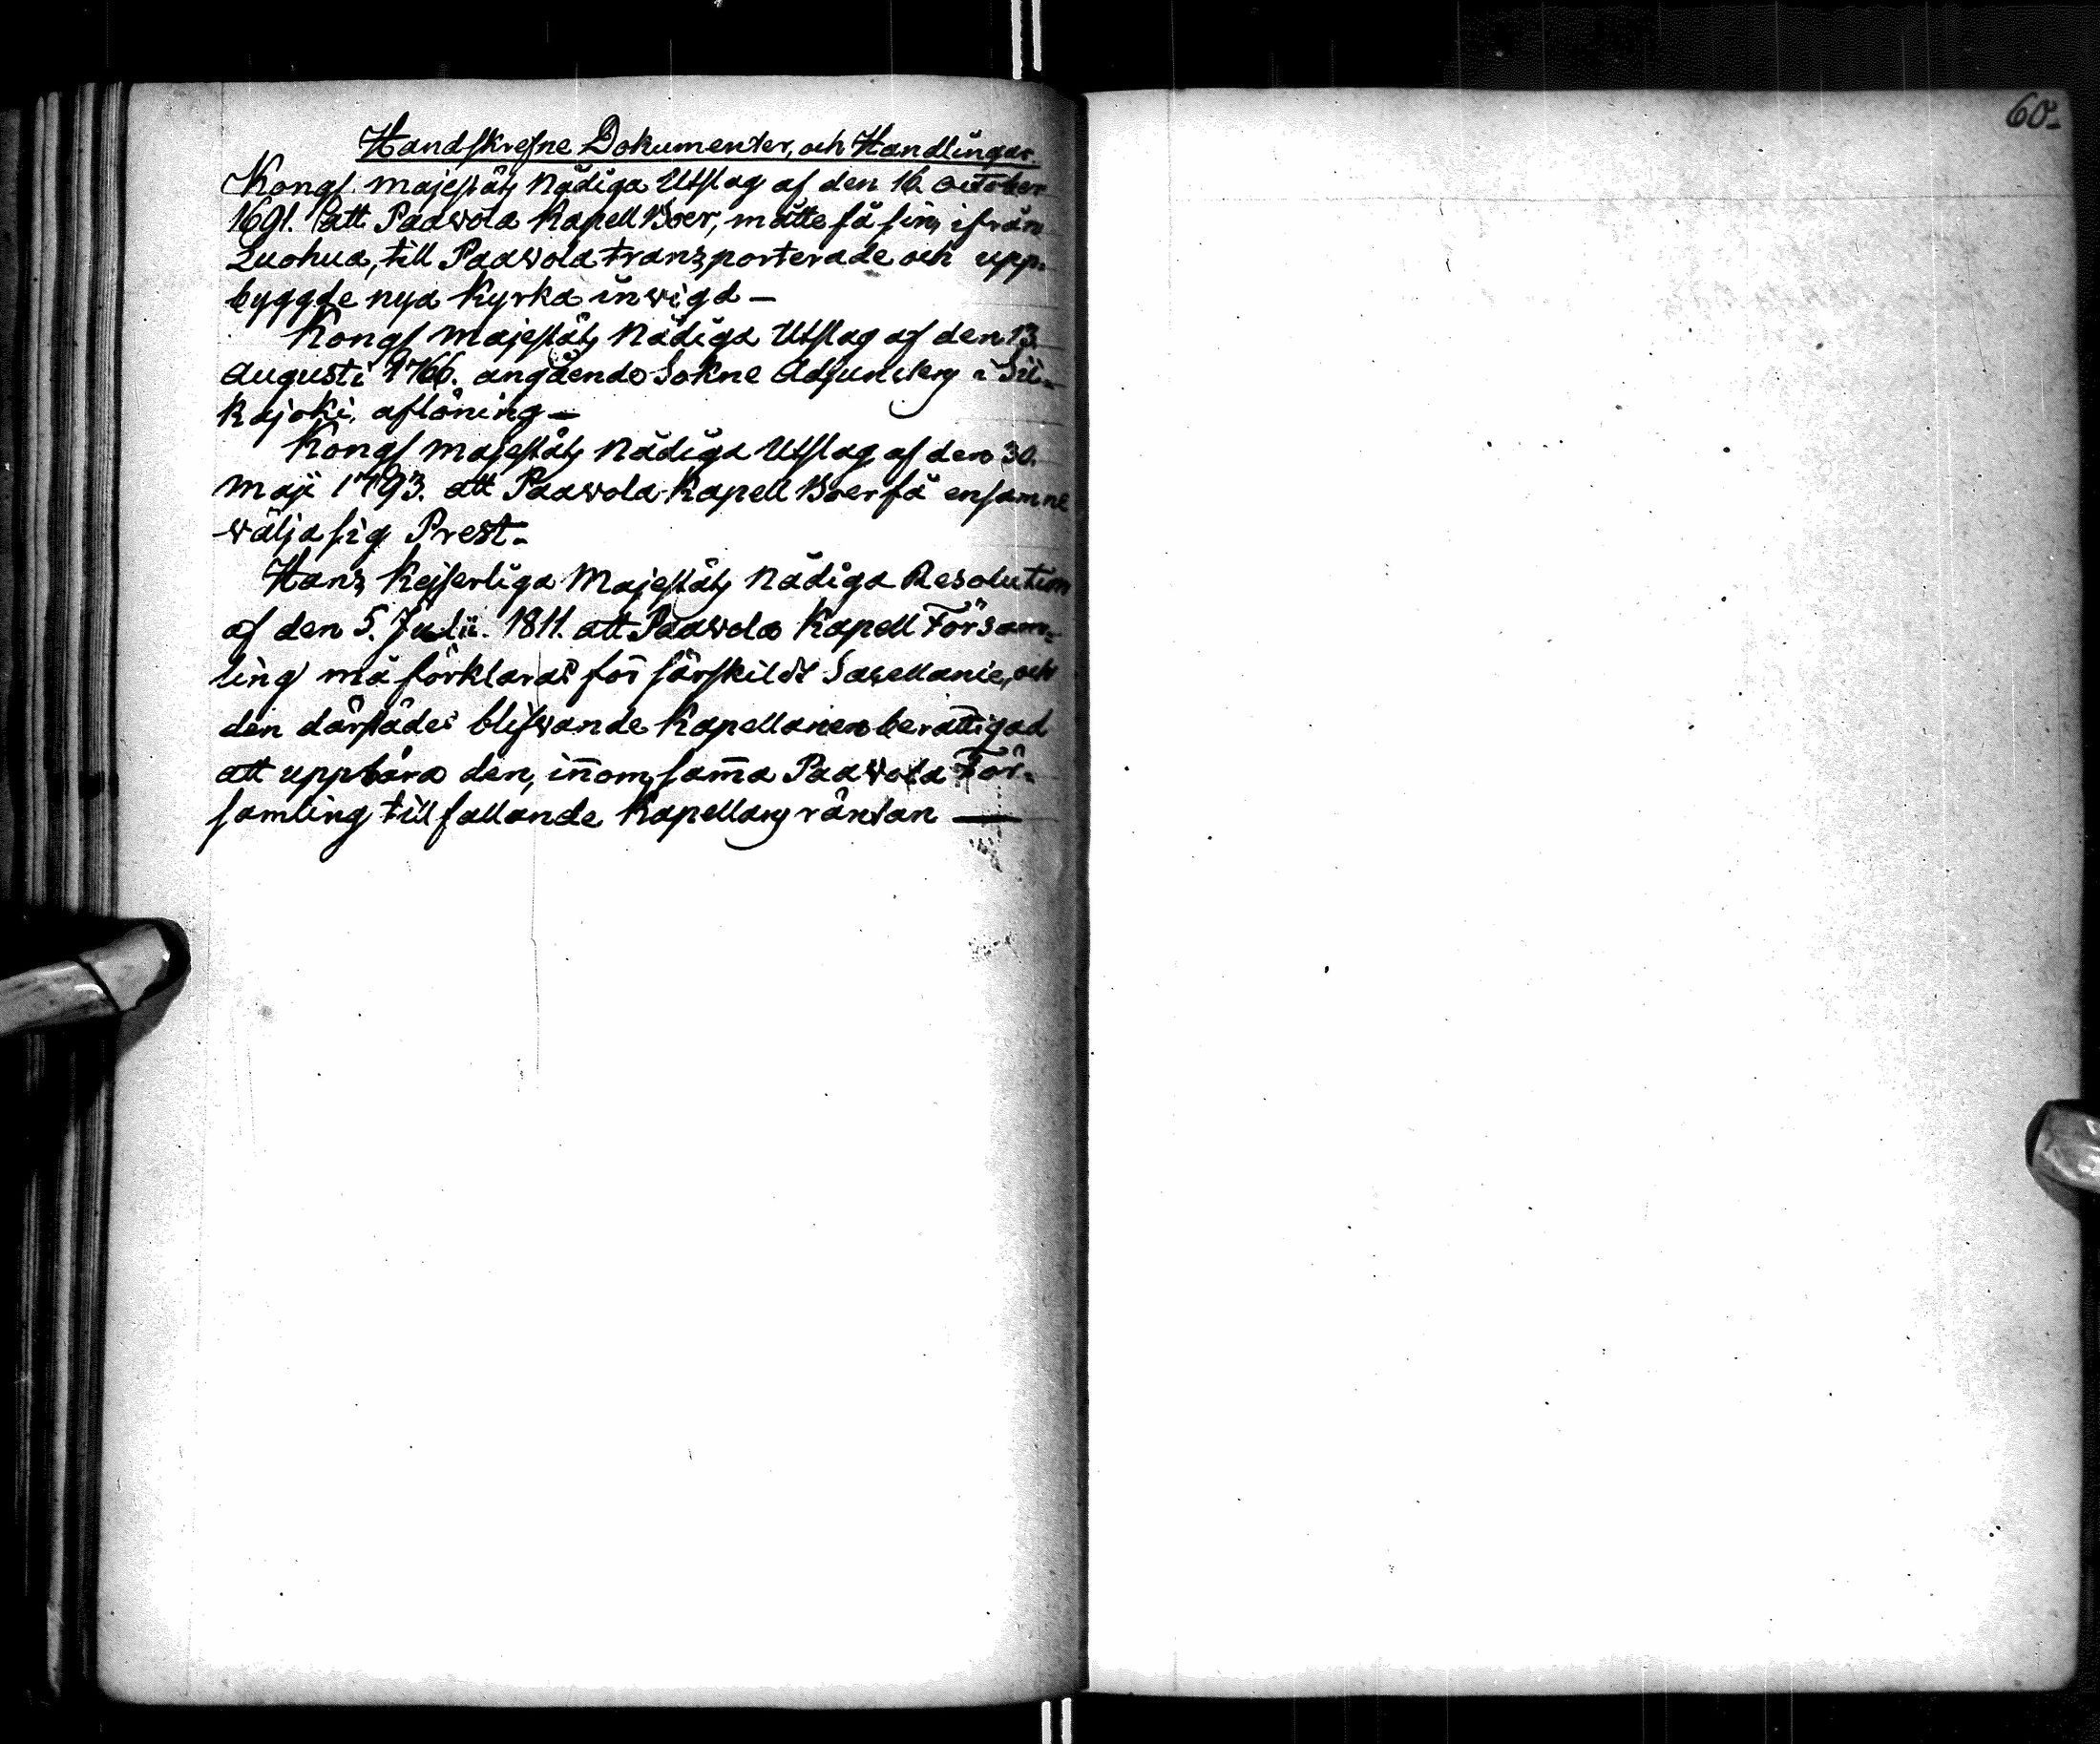 Handskrefne Dokumenter, och Handlingar.
Kongl. Majestäts Nådiga Utslag af den 16. October
1691. att Paavola Kapell Boer, måtte få sin, ifrån
Luohua, till Paavola transporterade och upp-
byggde nya Kyrka inwigd —
Kongl Majestäts Nådiga Utslag af den 13
Augusti 1766. angående Sokne Adjunctens i Sii-
kajoki aflöning —
Kongl Majestäts Nådiga Utslag af den 30.
Maji 1793. att Paavola Kapell Boer få ensamne
wälja sig Prest.
Hans Kejserliga Majestäts Nådiga Resolution
af den 5. Julii. 1811. att Paavola Kapell Försam-
ling må förklaras för särskildt Sacellanie, och
den därstädes blifwande Kapellanen berättigad
att uppbära den, inom samma Paavola För-
samling tillfallande Kapellans räntan —
60.